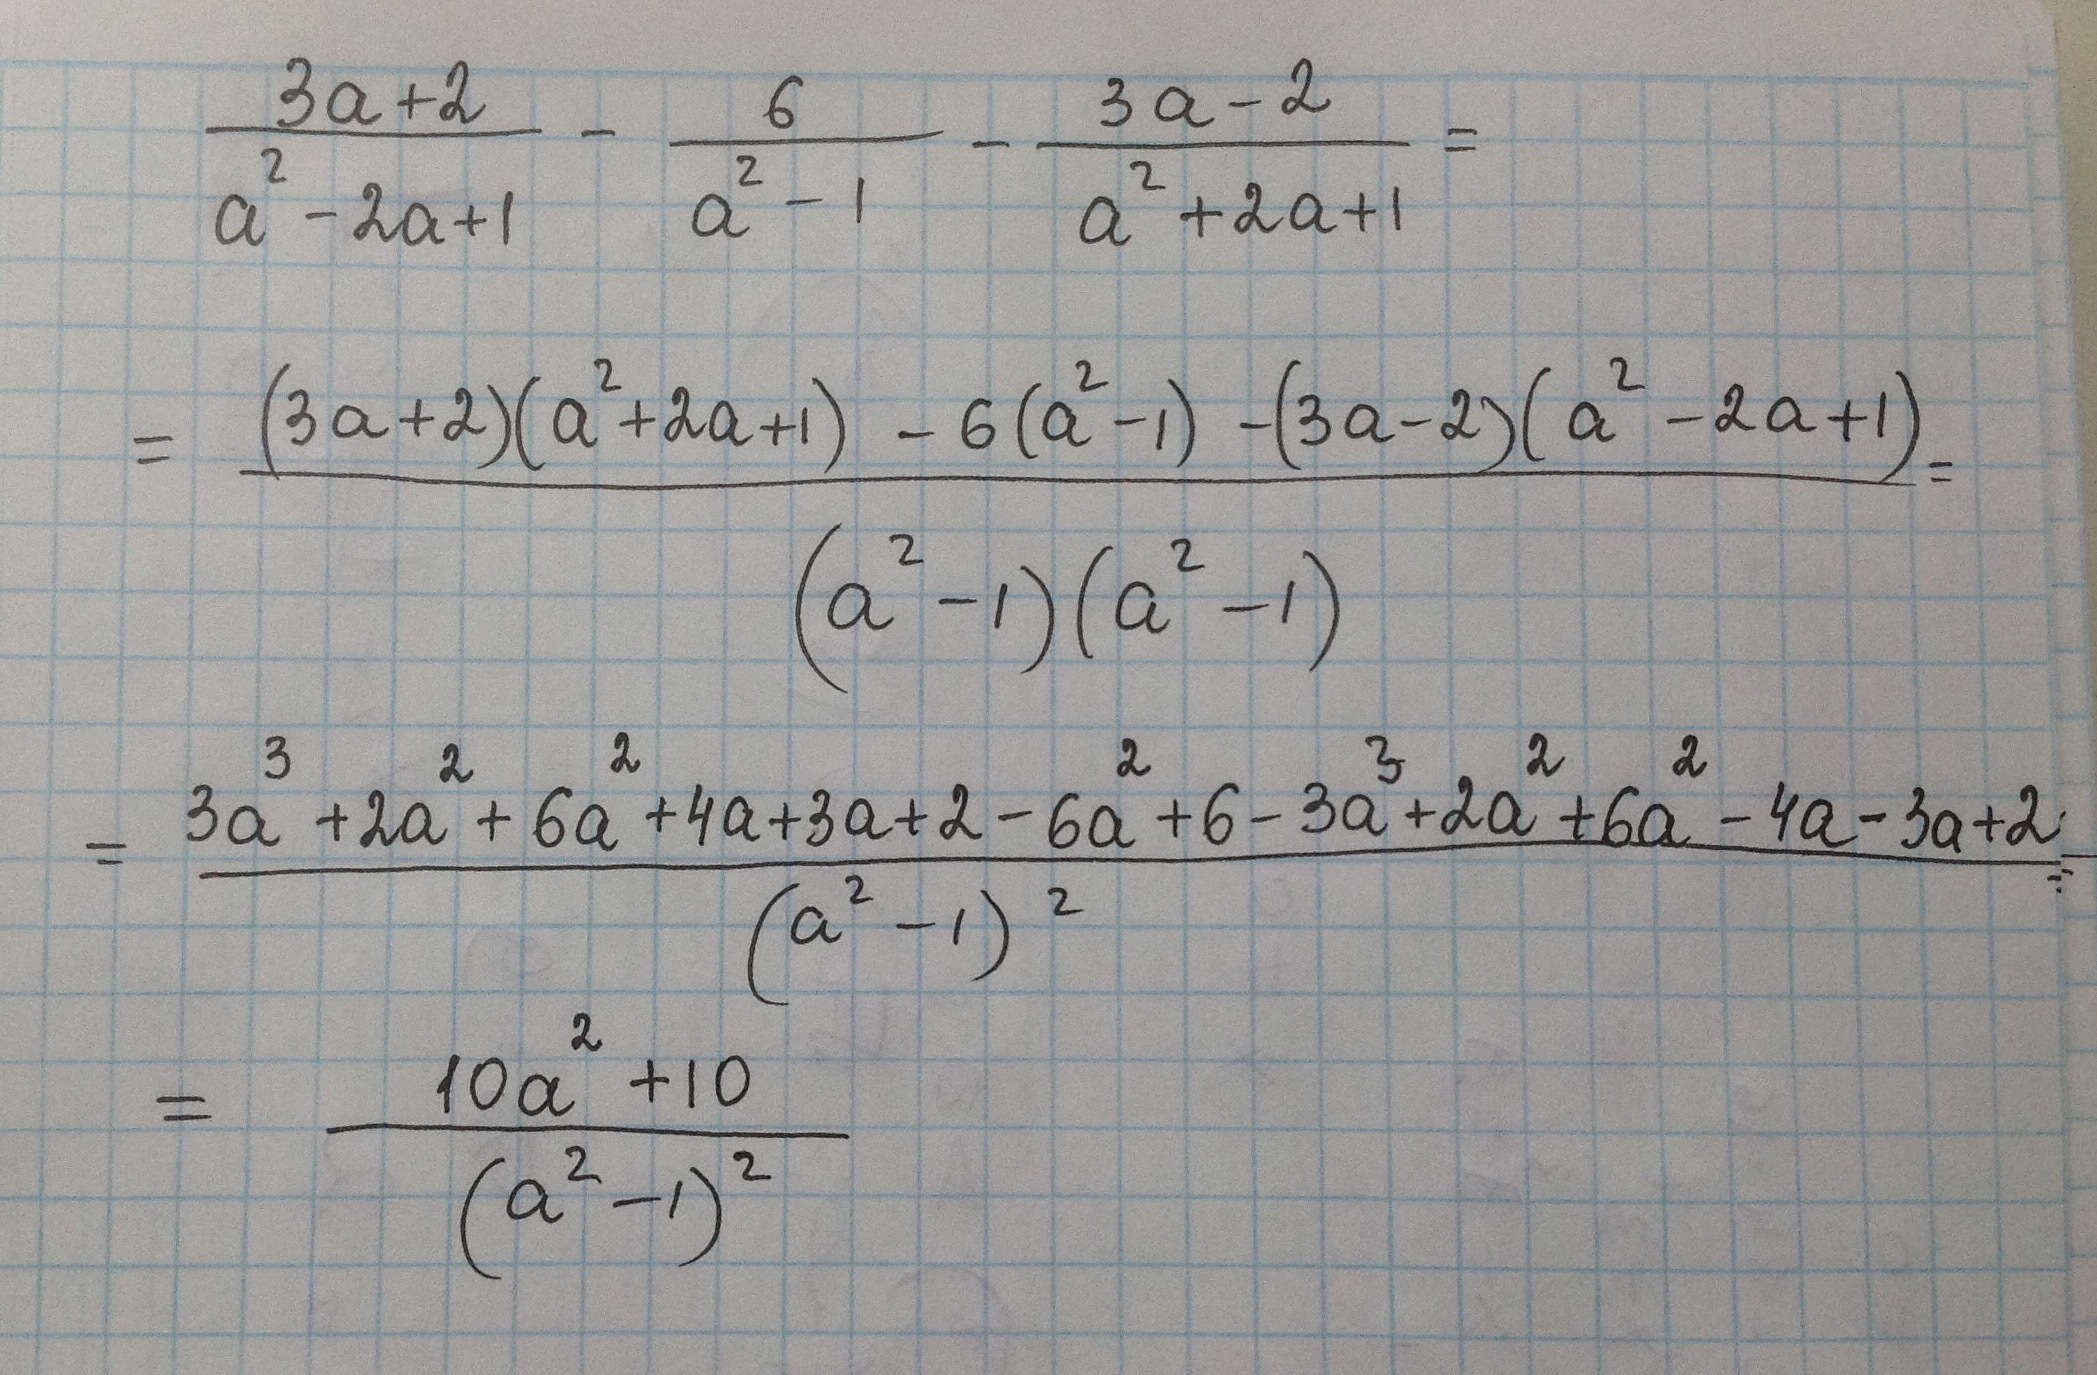 (3a+2)/(a²-2a+1) - 6/(a²-1) - (3a-2)/(a²+2a+1) =
= ((3a+2)(a²+2a+1) - 6(a²-1) - (3a-2)(a²-2a+1))/((a²-1)(a²-1)) =
= (3a³+2a²+6a²+4a+3a+2-6a²+6-3a³+2a²+6a²-4a-3a+2)/(a²-1)² =
= (10a²+10)/(a²-1)²